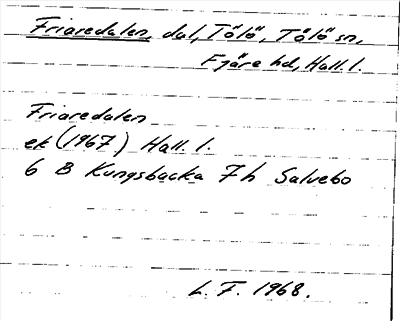 Friaredalen, dal, Tölö, Tölö sn,
Fjäre hd, Hall. l.
Friaredalen
ek (1967) Hall. l.
6 B Kungsbacka 7h Salvebo
L. F. 1968.